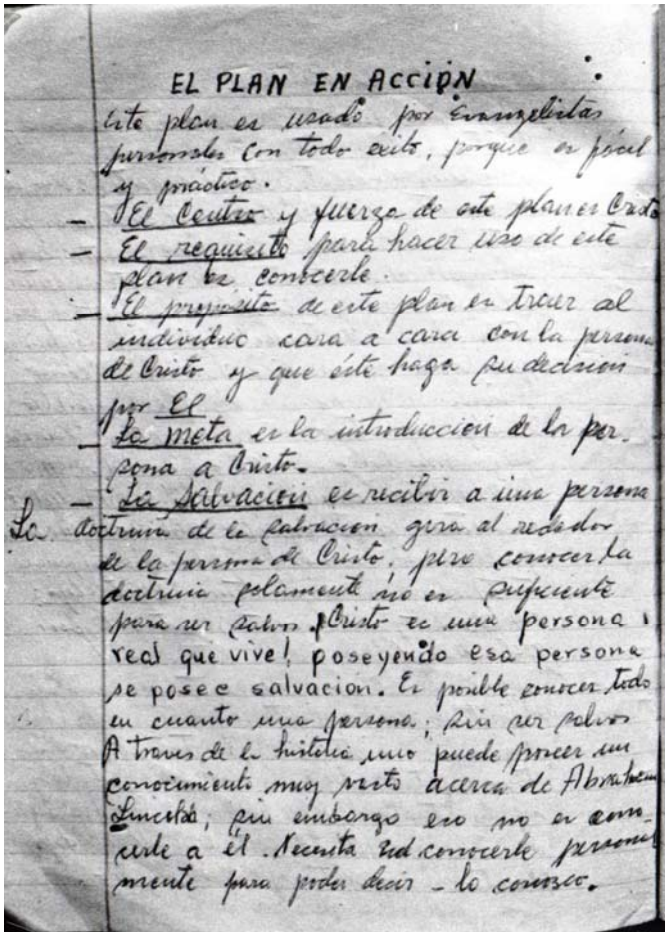 EL PLAN EN ACCIÓN
Este plan es usado por Evangelistas
personales con todo exito, porque es fácil
y práctico.
- El Centro y fuerza de este plan es Cristo
- El requisito para hacer uso de este
plan es conocerle.
- El proposito de este plan es traer al
individuo cara a cara con la persona
de Cristo y que éste haga su decision
por El
- La meta es la introduccion de la per-
sona a Cristo.
- La Salvacion es recibir a una persona
La doctrina de la salvacion gira al rededor
de la persona de Cristo, pero conocer la
doctrina solamente no es suficiente
para ser salvos. ¡Cristo es una persona
real que vive! poseyendo esa persona
se posee salvacion. Es posible conocer todo
en cuanto una persona; sin ser salvos
A traves de la historia uno puede poseer un
conocimiento muy vasto acerca de Abraham
Lincoln; sin embargo eso no es cono-
cerle a él. Necesita Ud conocerle personal
mente para poder decir - lo conosco.